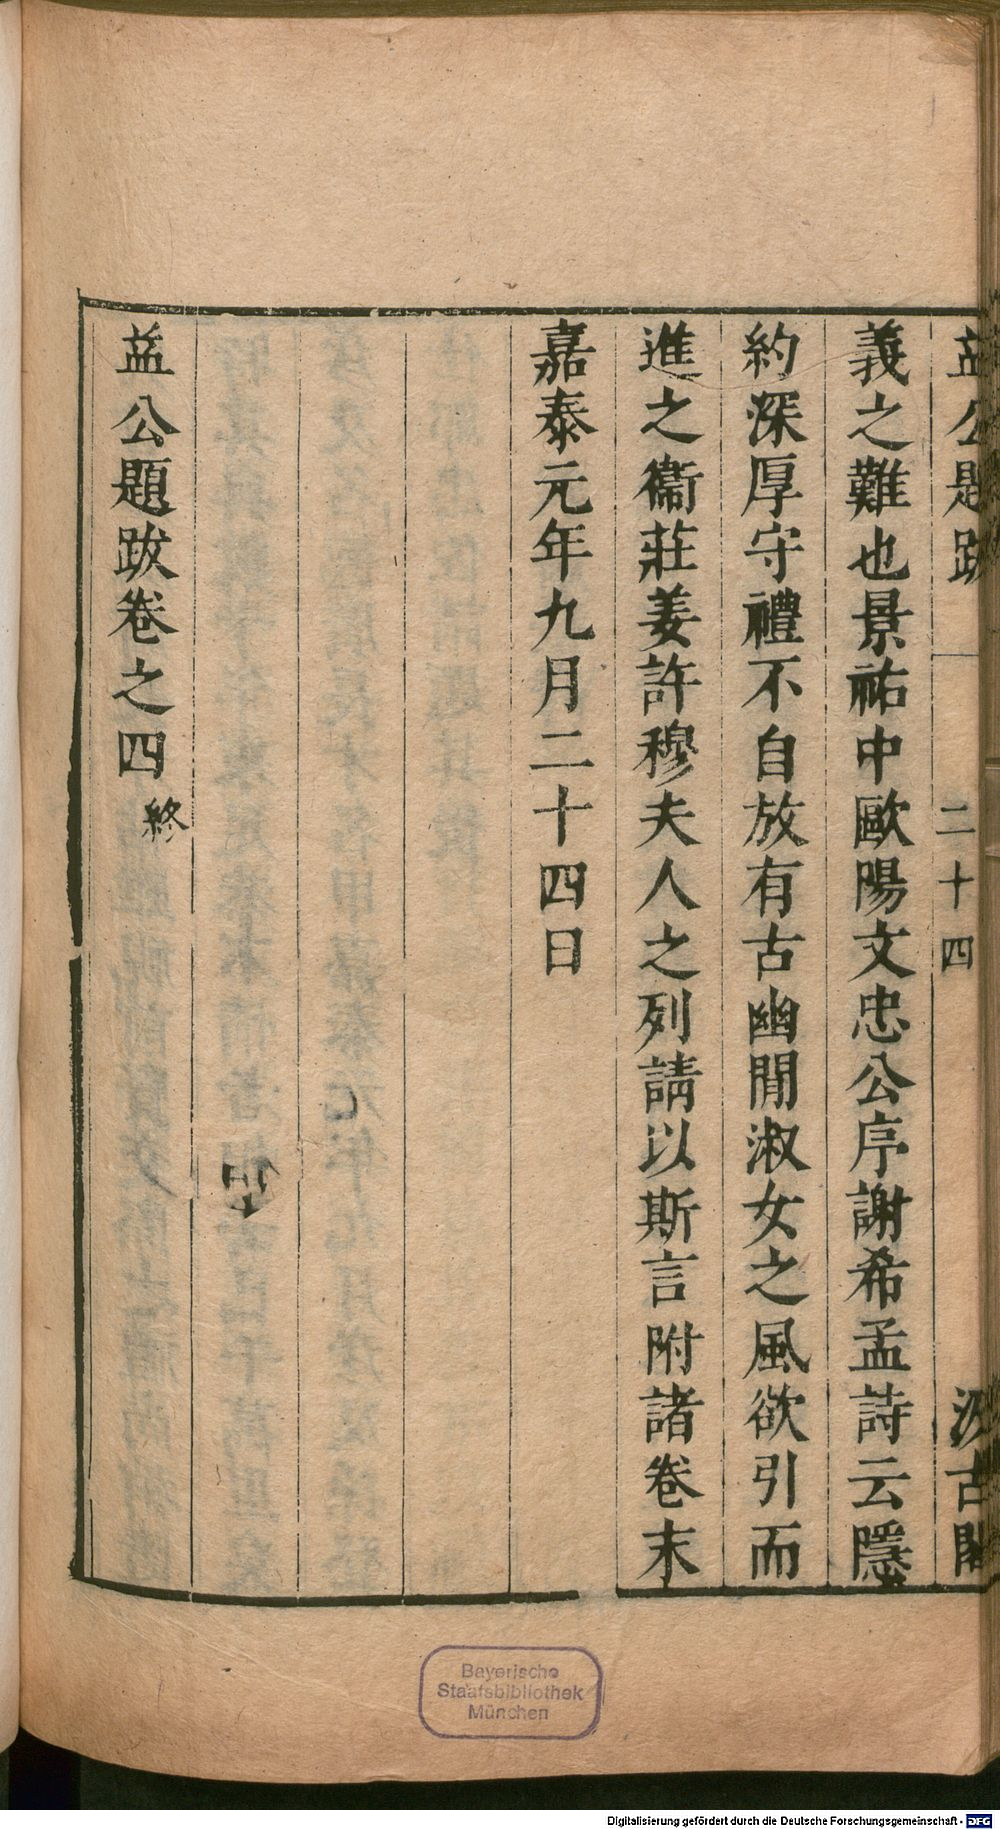 益公題跋 二十四 汲古閣
義之難也景祐中歐陽文忠公序謝希孟詩云隱
約深厚守禮不自放有古幽閒淑女之風欲引而
進之衞莊姜許穆夫人之列請以斯言附諸卷末
嘉泰元年九月二十四日
益公題跋卷之四終
Bayerische
Staatsbibliothek
München
Digitalisierung gefördert durch die Deutsche Forschungsgemeinschaft - DFG